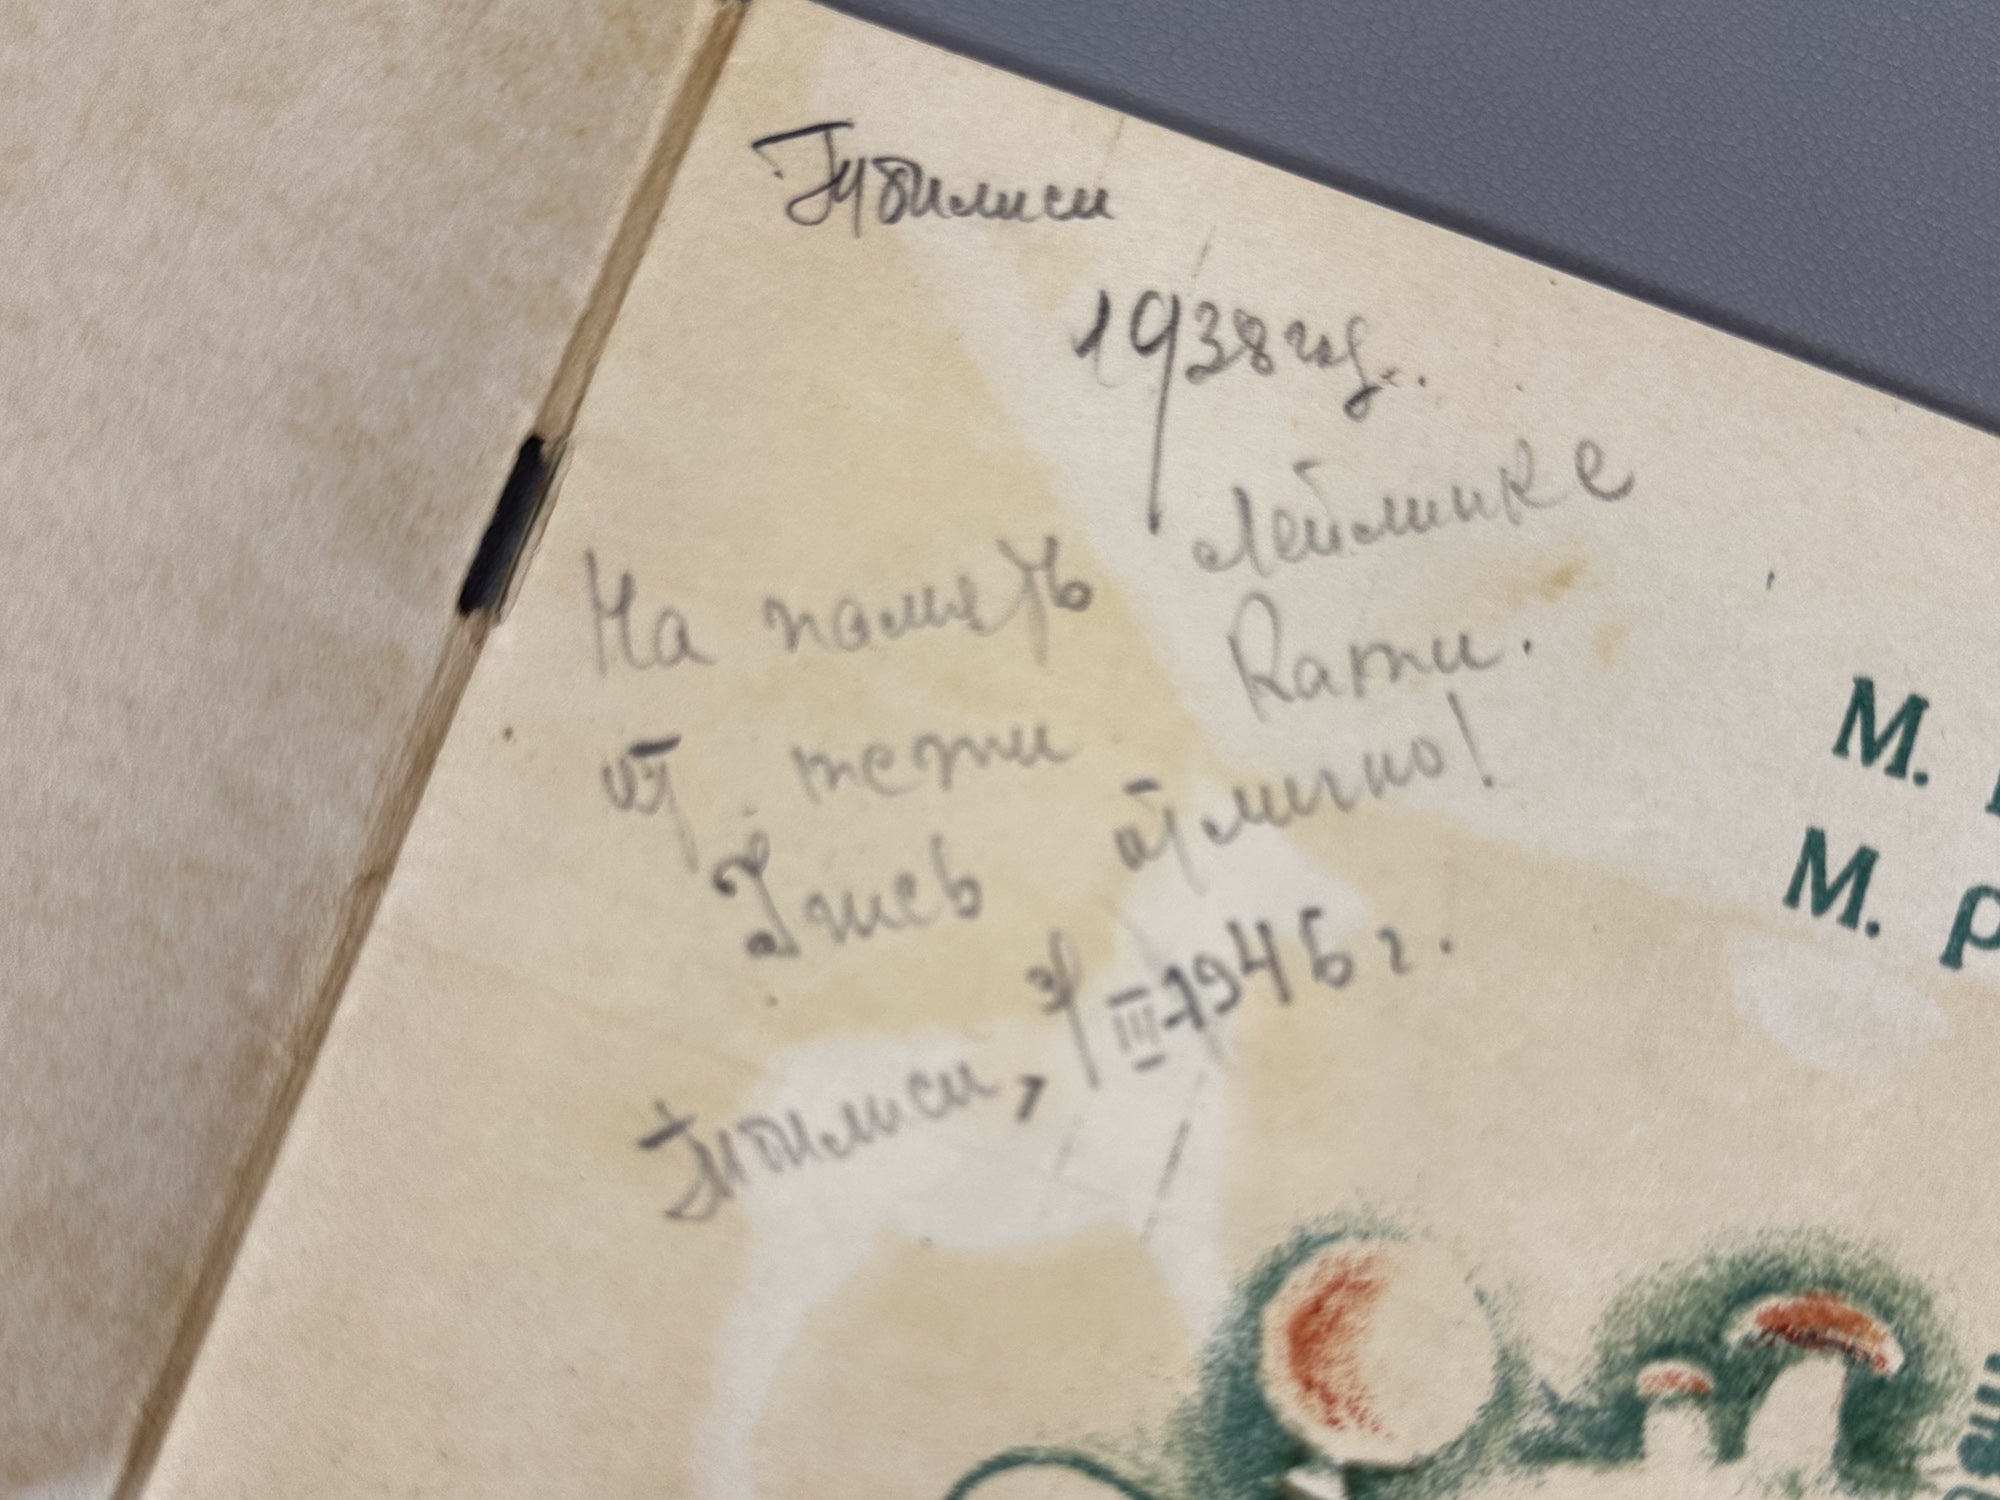 Тбилиси
1938 год.
На память Лейлике
от тети Кати.
Учись отлично!
Тбилиси, 3/III-1945 г.
М.
М. Р